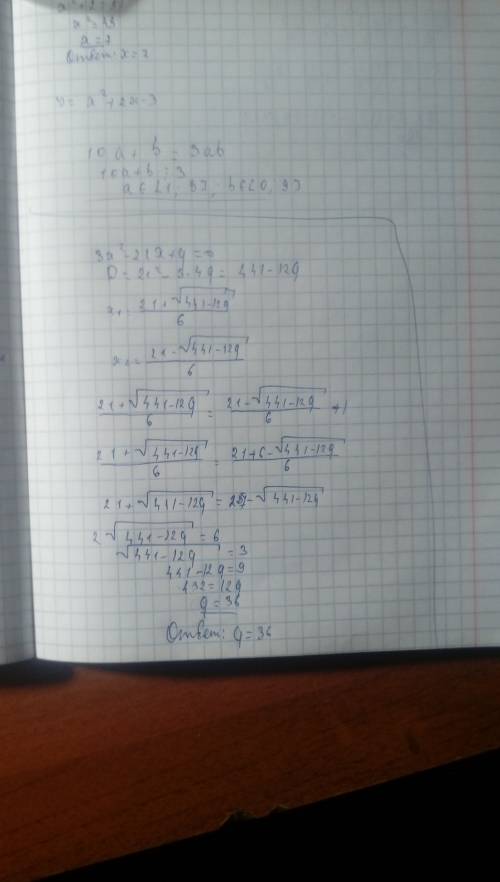 x = 7
Ответ: x = 7
y = x² + 2x - 3
10a + b = 3ab
3x² - 21x + q = 0
D = 21² - 3·4q = 441 - 12q
x₁ = (21 + √(441 - 12q)) / 6
x₂ = (21 - √(441 - 12q)) / 6
(21 + √(441 - 12q)) / 6 = (21 - √(441 - 12q)) / 6 + 1
(21 + √(441 - 12q)) / 6 = (21 + 6 - √(441 - 12q)) / 6
21 + √(441 - 12q) = 27 - √(441 - 12q)
2√(441 - 12q) = 6
√(441 - 12q) = 3
441 - 12q = 9
432 = 12q
q = 36
Ответ: q = 36